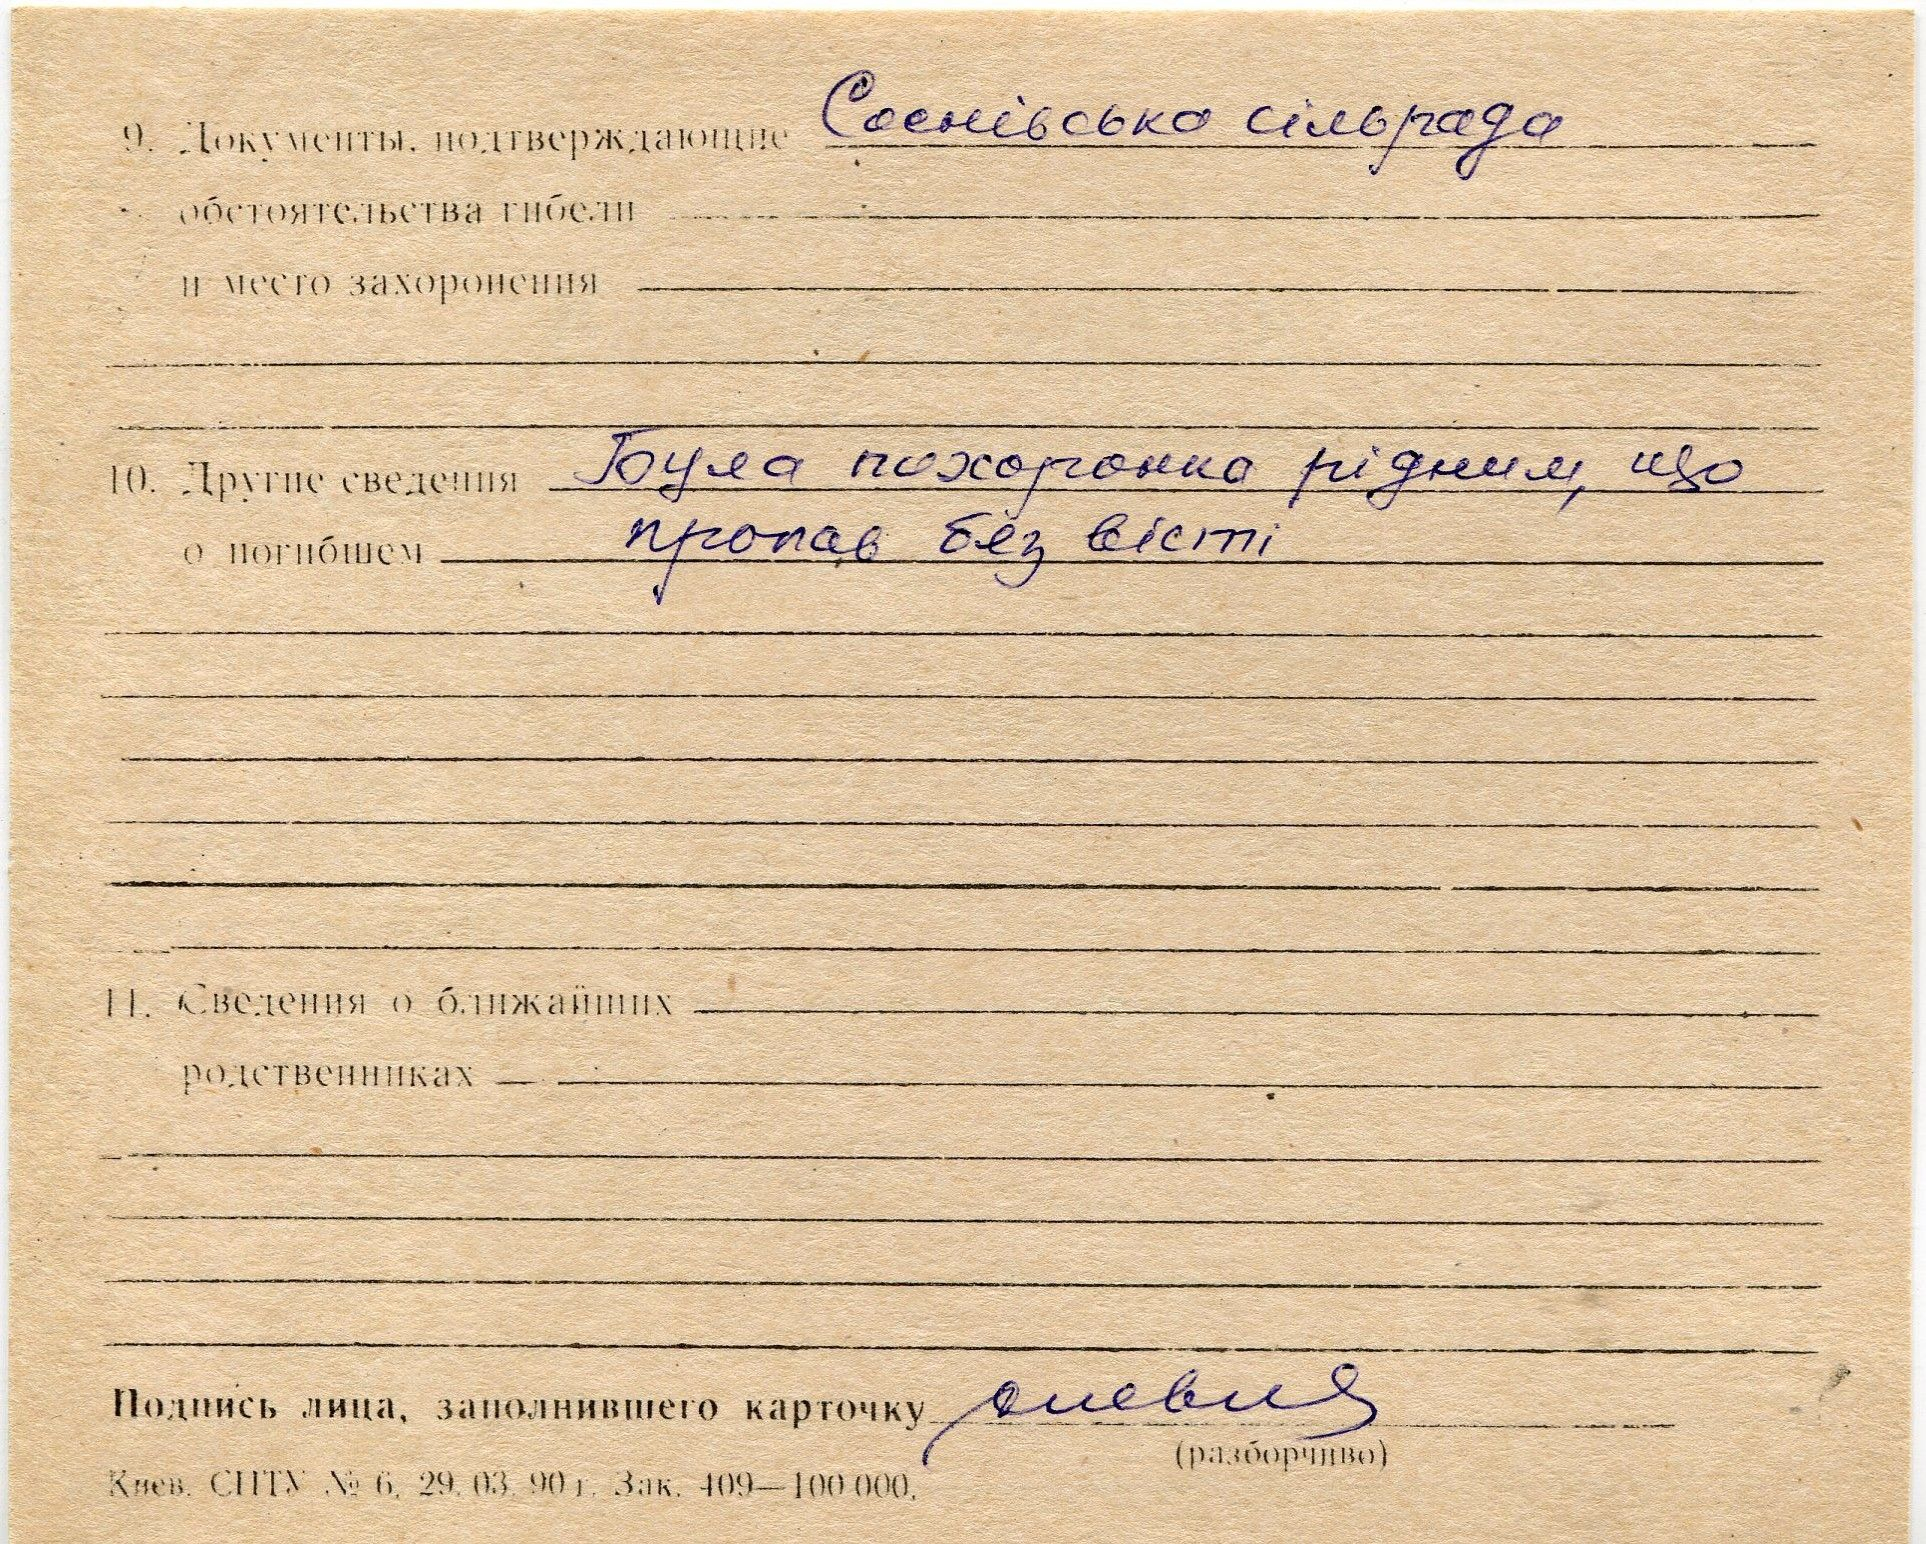 9. Документы, подтверждающие Соснівська сільрада
обстоятельства гибели
и место захоронения
10. Другие сведения Була похоронка рідним, що
о погибшем пропав без вісті
11. Сведения о ближайших
родственниках
Подпись лица, заполнившего карточку
(разборчиво)
Киев. СПТУ № 6, 29. 03. 90 г. Зак. 409—100 000.